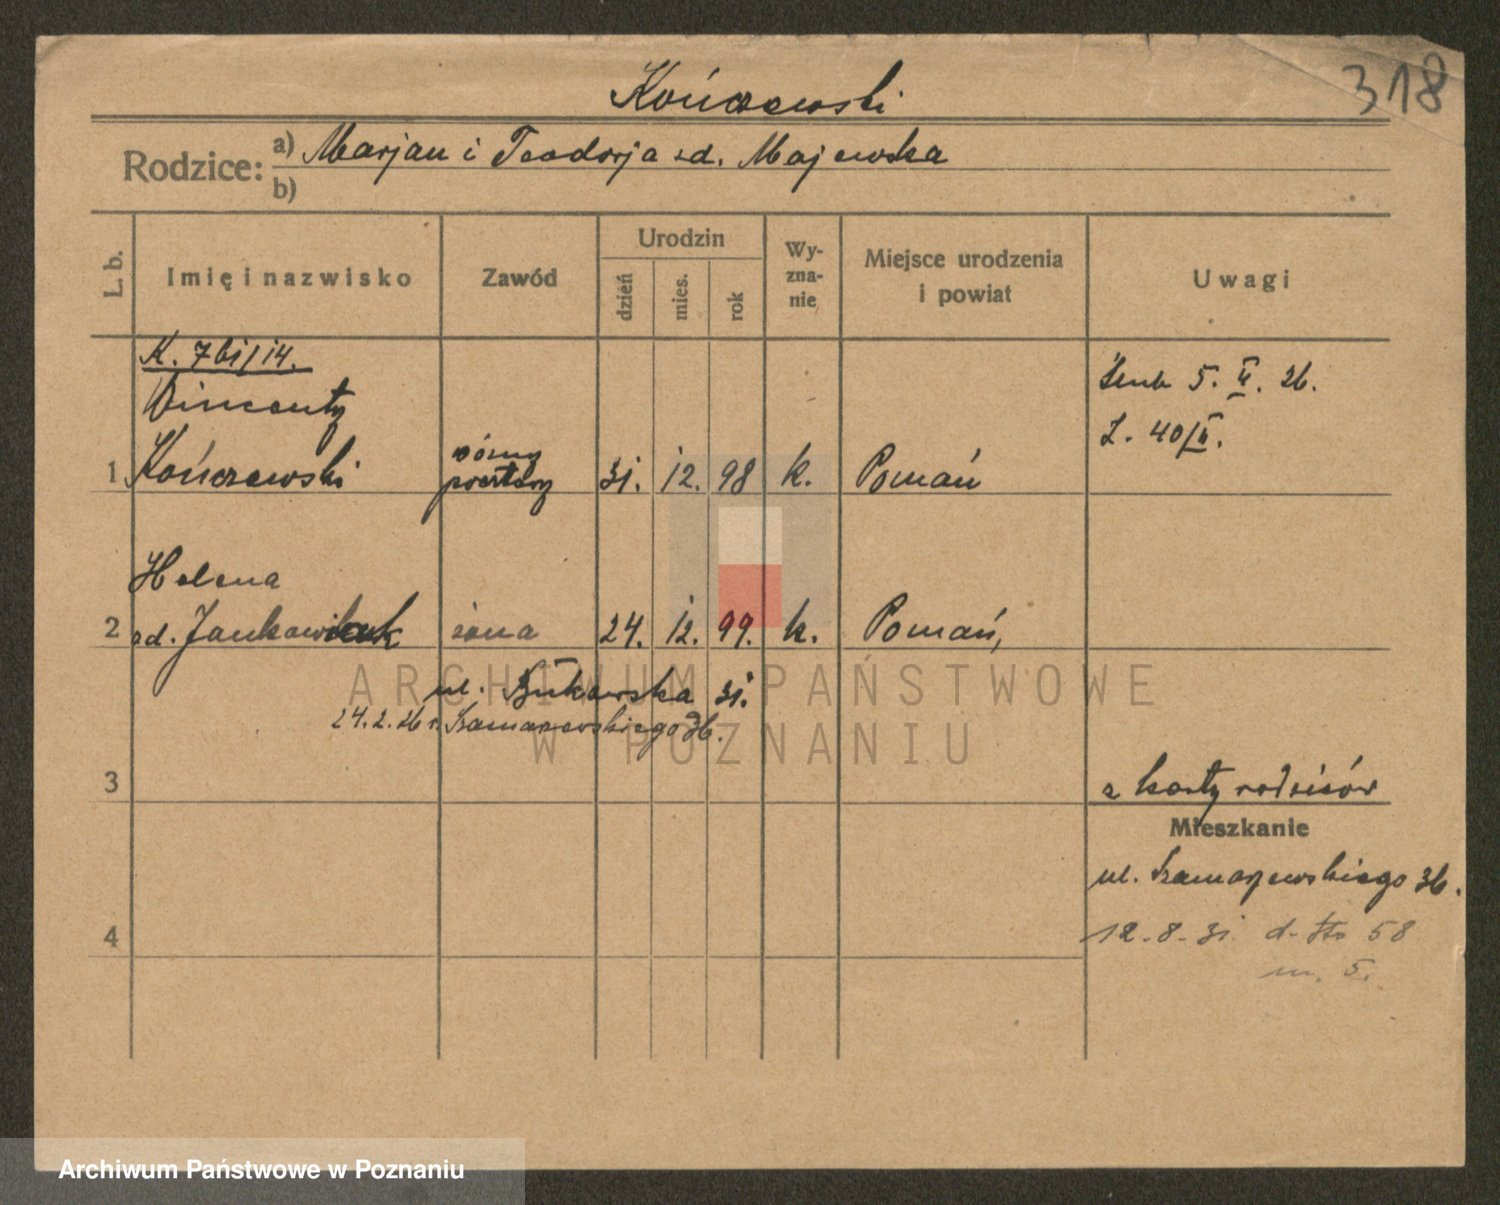 318
Kończewski
Rodzice: a) Marjan i Teodorja zd. Majewska
b)
L. b. Imię i nazwisko Zawód Urodzin dzień mies. rok Wy-zna-nie Miejsce urodzenia i powiat Uwagi
K. 7bi/14.
Wincenty
1 Kończewski woźny pocztowy 31. 12. 98 k. Poznań
ślub 5. II. 26.
L. 40/II.
Helena
2 zd. Jankowiak żona 24. 12. 99. k. Poznań,
ul. Bukowska 31.
24.2.26 r. Szamarzewskiego 36.
3
z karty rodziców
Mieszkanie
ul. Szamarzewskiego 36.
12-8-31 d-tto 58
m. 5.
4
ARCHIWUM PAŃSTWOWE
W POZNANIU
Archiwum Państwowe w Poznaniu